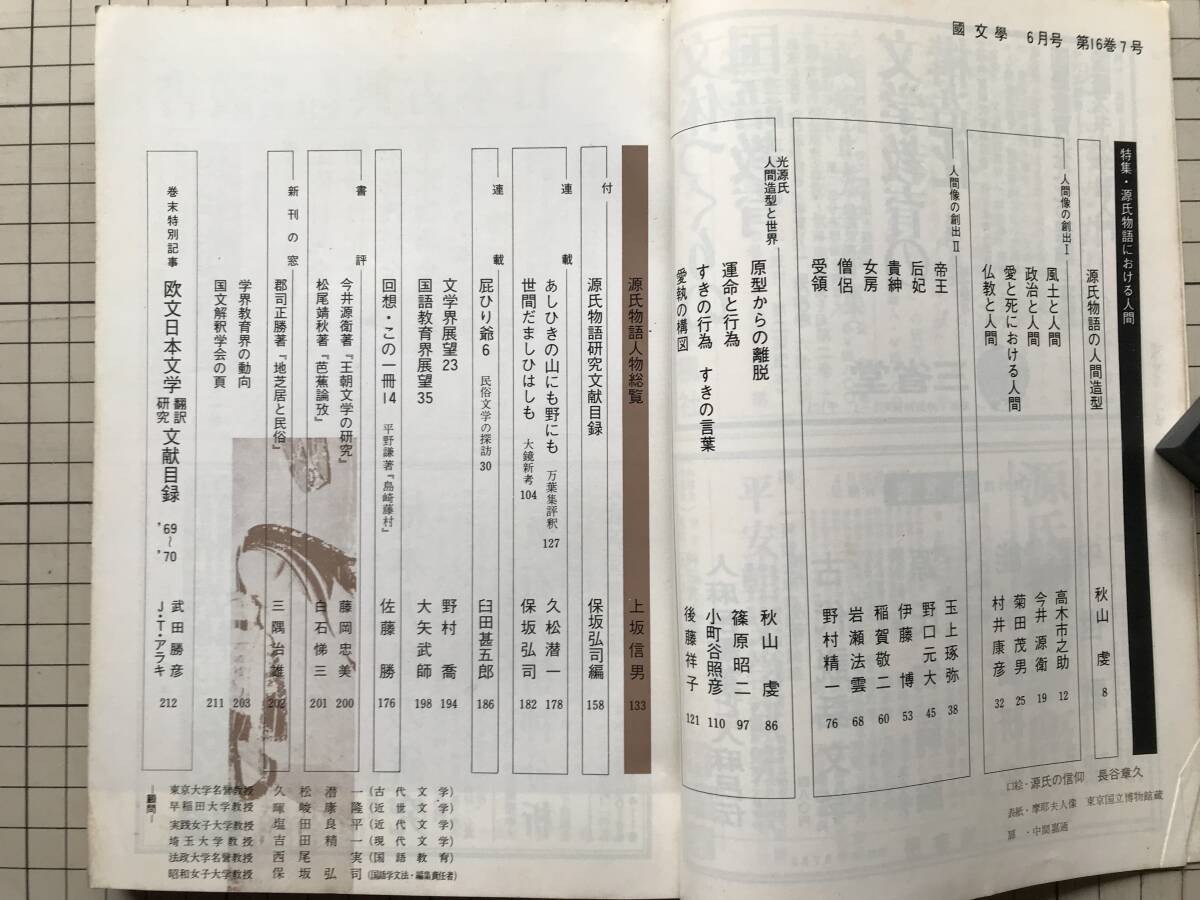 國文學 6月号 第16巻7号
特集・源氏物語における人間
源氏物語の人間造型 秋山虔 8
人間像の創出Ⅰ
風土と人間 高木市之助 12
政治と人間 今井源衛 19
愛と死における人間 菊田茂男 25
仏教と人間 村井康彦 32
人間像の創出Ⅱ
帝王 玉上琢弥 38
后妃 野口元大 45
貴紳 伊藤博 53
女房 稲賀敬二 60
僧侶 岩瀬法雲 68
受領 野村精一 76
光源氏
人間造型と世界
原型からの離脱 秋山虔 86
運命と行為 篠原昭二 97
すきの行為 すきの言葉 小町谷照彦 110
愛執の構図 後藤祥子 121
口絵・源氏の信仰 長谷章久
表紙・摩耶夫人像 東京国立博物館蔵
扉・中間嘉通
源氏物語人物総覧 上坂信男 133
付 源氏物語研究文献目録 保坂弘司編 158
連載
あしひきの山にも野にも 万葉集評釈 127 久松潜一 178
世間だましひはしも 大鏡新考 104 保坂弘司 182
連載
屁ひり爺6 民俗文学の探訪 30 臼田甚五郎 186
文学界展望23 野村喬 194
国語教育界展望35 大矢武師 198
回想・この一冊14 平野謙著『島崎藤村』 佐藤勝 176
書評
今井源衛著『王朝文学の研究』 藤岡忠美 200
松尾靖秋著『芭蕉論攷』 白石悌三 201
新刊の窓
郡司正勝著『地芝居と民俗』 三隅治雄 202
学界教育界の動向 203
国文解釈学会の頁 211
巻末特別記事 欧文日本文学 翻訳研究 文献目録 '69〜'70 武田勝彦 J・T・アラキ 212
東京大学名誉教授 久松潜一(古代文学)
早稲田大学教授 暉峻康隆(近世文学)
実践女子大学教授 塩田良平(近代文学)
埼玉大学教授 吉田精一(現代文学)
法政大学名誉教授 西尾実(国語教育)
昭和女子大学教授 保坂弘司(国語学文法・編集責任者)
―顧問―